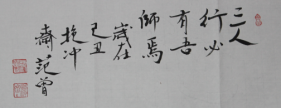 三人
行必
有吾
師焉
歲在
己丑
抱冲
齋范曾